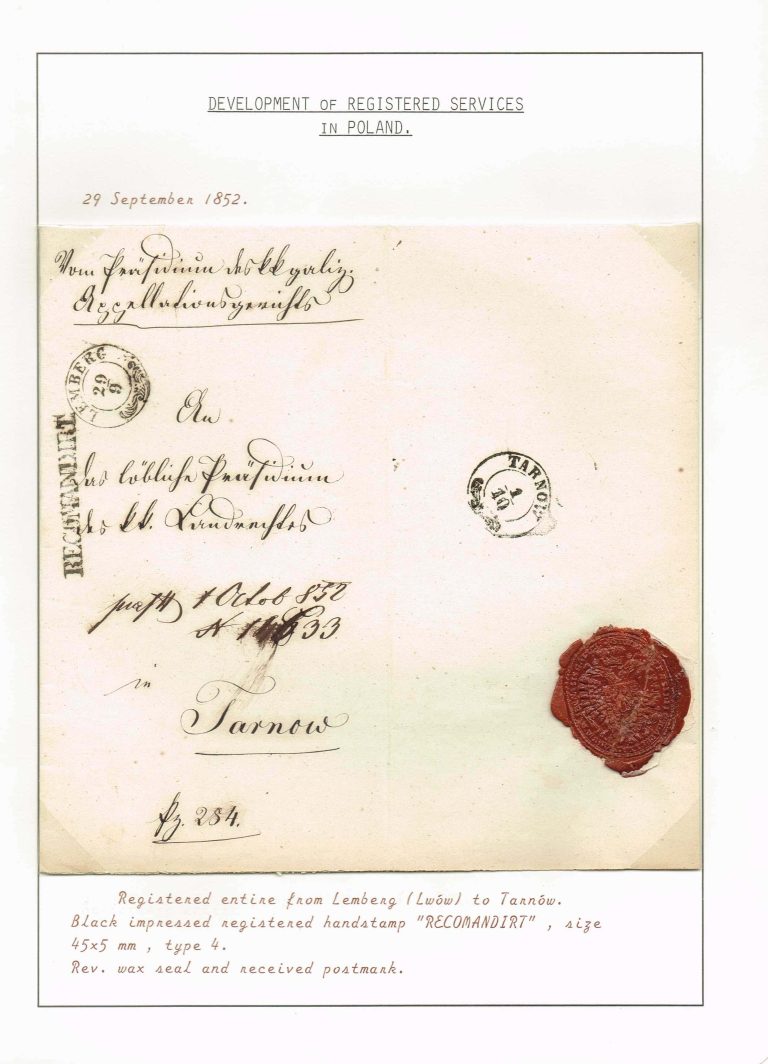 DEVELOPMENT OF REGISTERED SERVICES
IN POLAND.
29 September 1852.
Vom Präsidium des kk galiz.
Appellationsgerichts
LEMBERG
29
9
RECOMANDIRT
An
das löbliche Präsidium
des kk. Landrechtes
TARNOW
1
10
1 Octob 852
N
in
Tarnow
284.
Registered entire from Lemberg (Lwów) to Tarnów.
Black impressed registered handstamp "RECOMANDIRT" , size
45x5 mm , type 4.
Rev. wax seal and received postmark.